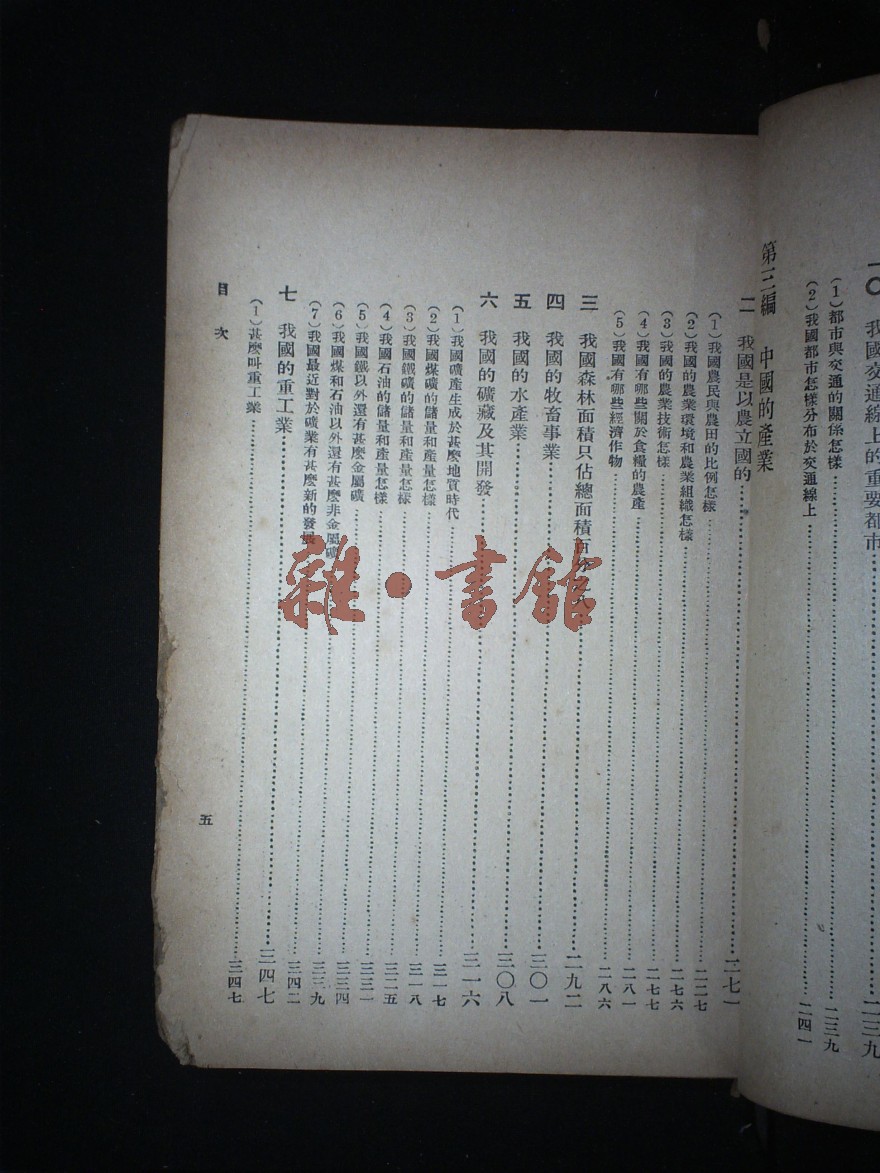 一〇 我國交通線上的重要都市……二三九
(1)都市與交通的關係怎樣……二三九
(2)我國都市怎樣分布於交通線上……二四一
第三編 中國的產業
二 我國是以農立國的……二七一
(1)我國農民與農田的比例怎樣……二二七
(2)我國的農業環境和農業組織怎樣……二七六
(3)我國的農業技術怎樣……二七七
(4)我國有哪些關於食糧的農產……二八一
(5)我國有哪些經濟作物……二八六
三 我國森林面積只佔總面積百分之八……二九二
四 我國的牧畜事業……三〇一
五 我國的水產業……三〇八
六 我國的礦藏及其開發……三一六
(1)我國礦產生成於甚麼地質時代……三一七
(2)我國煤礦的儲量和產量怎樣……三一八
(3)我國鐵礦的儲量和產量怎樣……三二五
(4)我國石油的儲量和產量怎樣……三三一
(5)我國鐵以外還有甚麼金屬礦……三三四
(6)我國煤和石油以外還有甚麼非金屬礦……三三九
(7)我國最近對於礦業有甚麼新的發展……三四二
七 我國的重工業……三四七
(1)甚麼叫重工業……三四七
目次
五
雜·書館